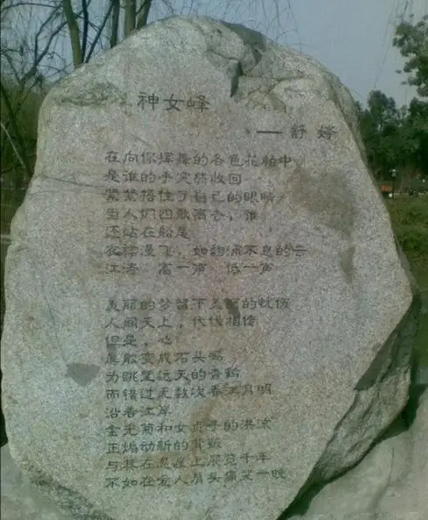 神女峰
——舒婷
在向你挥舞的各色花帕中
是谁的手突然收回
紧紧捂住了自己的眼睛
当人们四散离去，谁
还站在船尾
衣裙漫飞，如翻涌不息的云
江涛 高一声 低一声
美丽的梦留下美丽的忧伤
人间天上，代代相传
但是，心
真能变成石头吗
为眺望远天的杳鹤
而错过无数次春江月明
沿着江岸
金光菊和女贞子的洪流
正煽动新的背叛
与其在悬崖上展览千年
不如在爱人肩头痛哭一晚